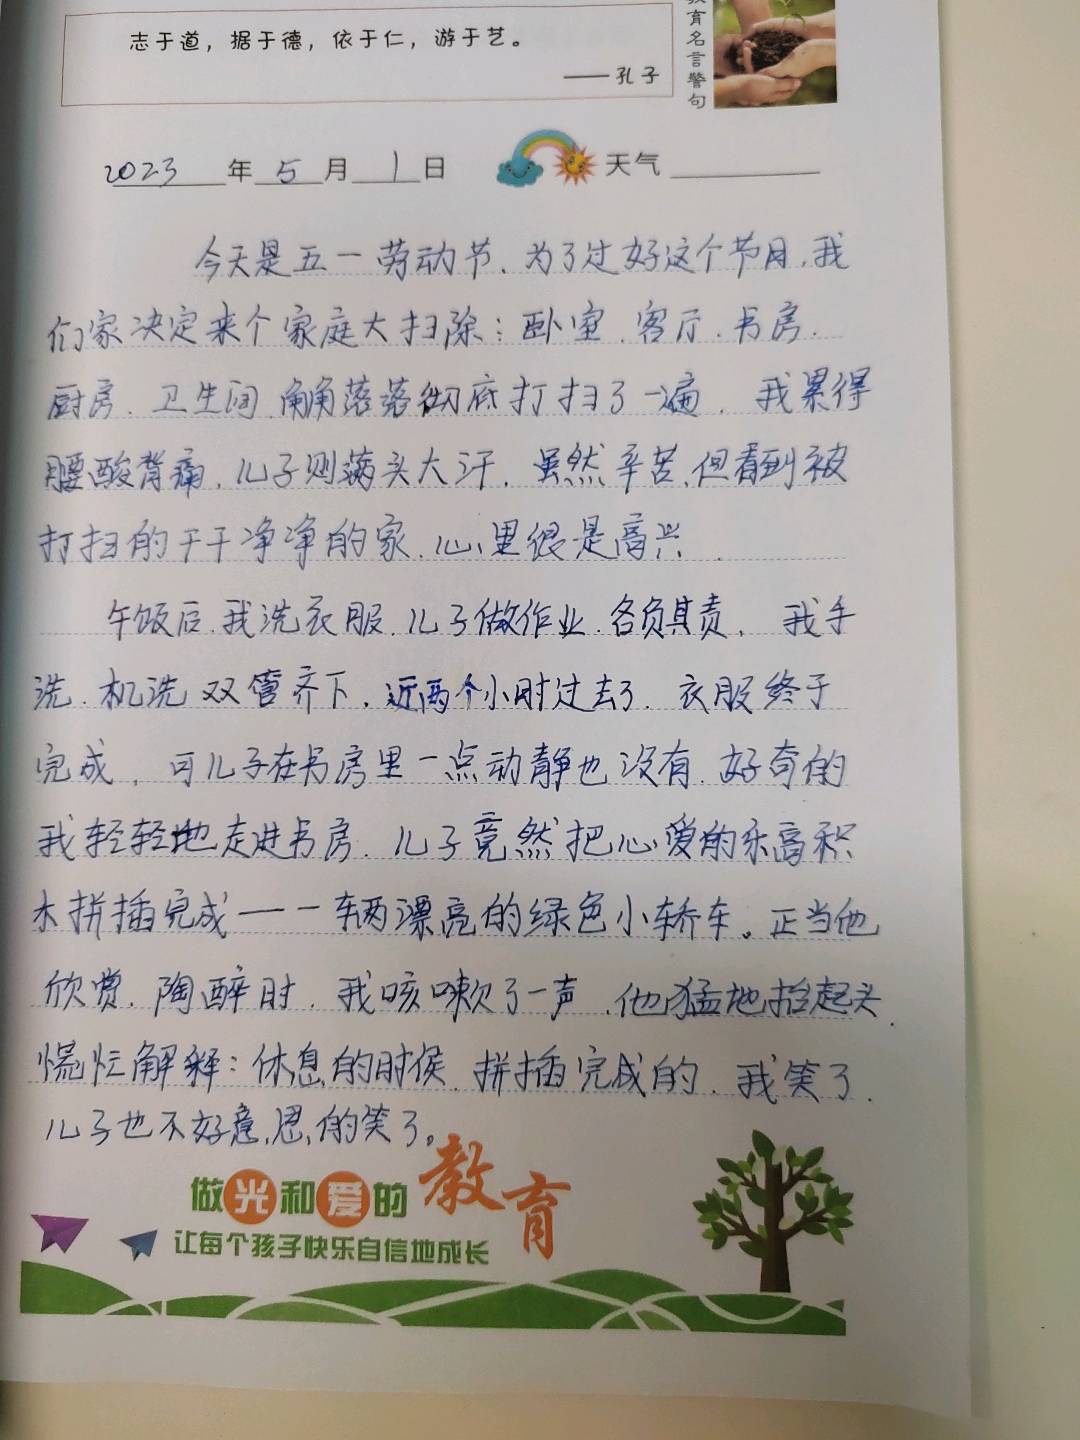 志于道，据于德，依于仁，游于艺。
——孔子
育名言警句
2023年5月1日 天气
今天是五一劳动节.为了过好这个节日.我
们家决定来个家庭大扫除：卧室.客厅.书房.
厨房.卫生间.角角落落彻底打扫了一遍.我累得
腰酸背痛.儿子则满头大汗.虽然辛苦.但看到被
打扫的干干净净的家.心里很是高兴.
午饭后.我洗衣服.儿子做作业.各负其责.我手
洗.机洗双管齐下.近两个小时过去了.衣服终于
完成.可儿子在书房里一点动静也没有.好奇的
我轻轻地走进书房.儿子竟然把心爱的乐高积
木拼插完成——一辆漂亮的绿色小轿车。正当他
欣赏.陶醉时.我咳嗽了一声.他猛地抬起头.
慌忙解释：休息的时侯.拼插完成的.我笑了.
儿子也不好意思的笑了。
做光和爱的教育
让每个孩子快乐自信地成长